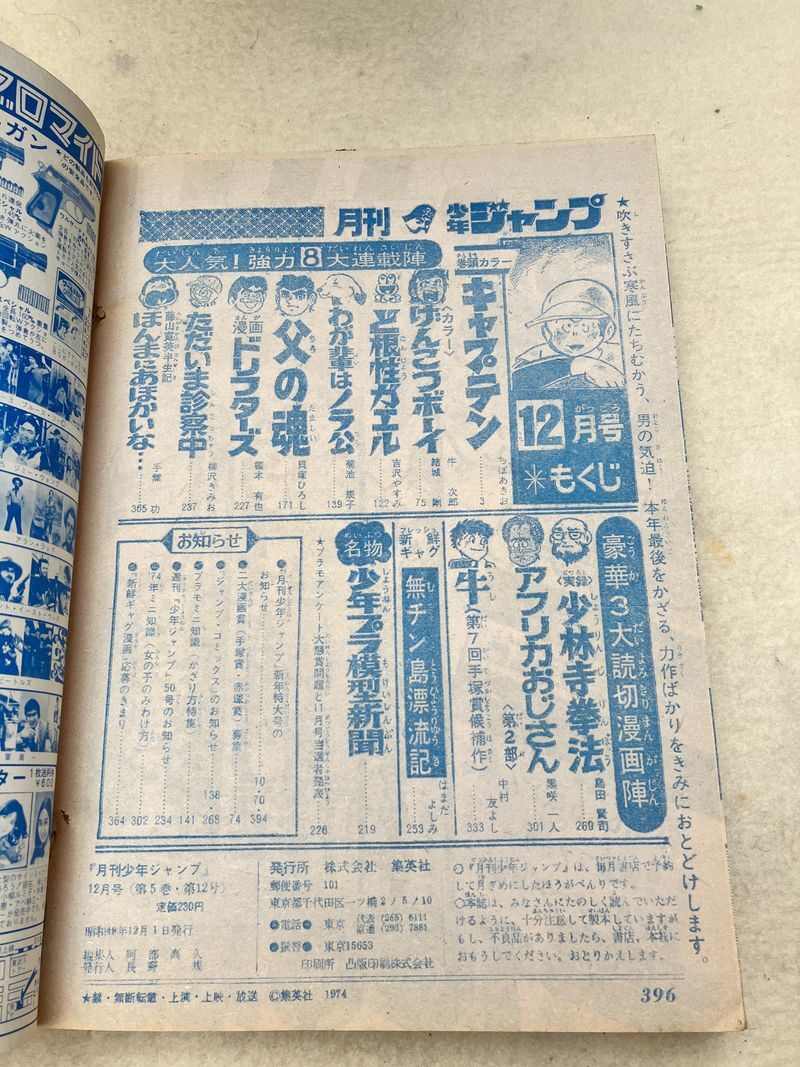 月刊 少年ジャンプ
★吹きすさぶ寒風にたちむかう、男の気迫!本年最後をかざる、力作ばかりをきみにおとどけします。
12月号
＊もくじ
大人気!強力8大連載陣
巻頭カラー
キャプテン ちばあきお 3
〈カラー〉
げんこつボーイ 牛次郎 結城剛 75
ど根性ガエル 吉沢やすみ 122
わが輩はノラ公 菊池規子 139
父の魂 貝塚ひろし 171
漫画ドリフターズ 榎本有也 227
ただいま診察中 柳沢きみお 237
藤山寛美半生記
ほんまにあほかいな… 手塚功 365
豪華3大読切漫画陣
〈実録〉少林寺拳法 島田賢司 269
アフリカおじさん〈第2部〉 黒咲一人 301
牛〈第7回手塚賞候補作〉 中村友よし 333
フレッシュ
新鮮ギャグ
無チン島漂流記 はまだよしみ 253
名物
少年プラ模型新聞 219
★プラモアンケート大懸賞問題と11月号当選者発表 226
お知らせ
●『月刊少年ジャンプ』新年特大号の
お知らせ 394
●二大漫画賞(手塚賞・赤塚賞)募集 10・70 74
●『ジャンプ・コミックス』のお知らせ 138・268
●プラモミニ知識(かざり方特集) 234
●週刊『少年ジャンプ』50号のお知らせ 141
●'74年ミニ知識(女の子のみわけ方) 302
●新鮮ギャグ漫画・応募のきまり 364
『月刊少年ジャンプ』
12月号(第5巻・第12号)
定価230円
昭和49年12月1日発行
編集人 阿部高久
発行人 長野規
発行所 株式会社 集英社
郵便番号 101
東京都千代田区一ツ橋2/5/10
●電話● 東京 代表(265)6111
直通(293)7881
●振替● 東京15653
印刷所 凸版印刷株式会社
○『月刊少年ジャンプ』は、毎月書店で予約
して月ぎめにしたほうがべんりです。
○本誌は、みなさんにたのしく読んでいただ
けるように、十分注意して製本していますが
もし、不良品がありましたら、書店、本社に
おもうしでください。おとりかえします。
★禁・無断転載・上演・上映・放送 ©集英社 1974
396
ブロマイド
ガン
ワルサー
ブルース・リー
アラン・ラッド
ビートルズ
ター
1枚送料共
¥600